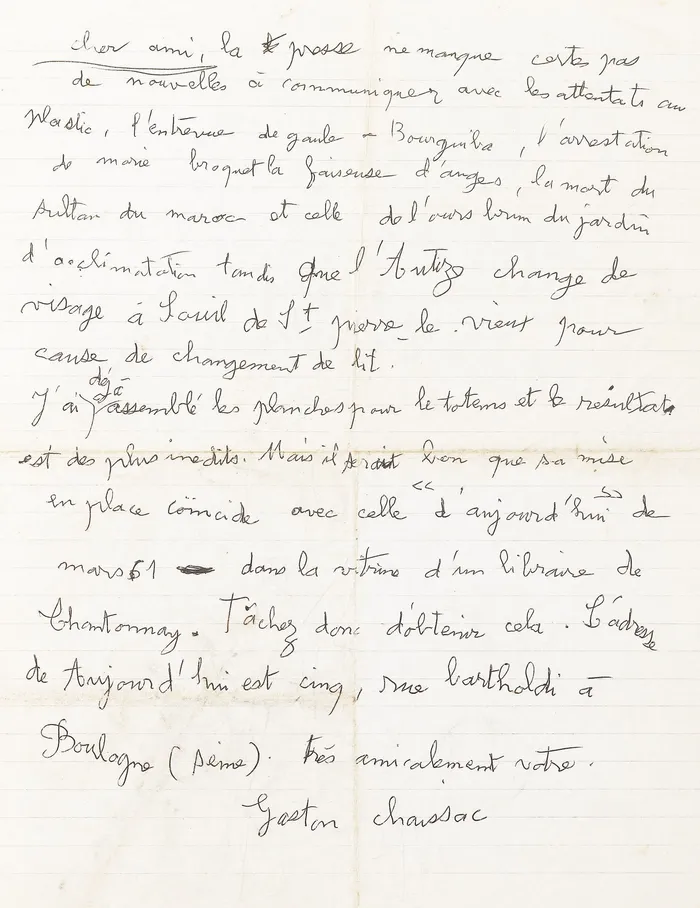 cher ami, la presse ne manque certes pas
de nouvelles à communiquer avec les attentats au
plastic, l'entrevue de gaule - Bourguiba, l'arrestation
de marie broquet la faiseuse d'anges, la mort du
sultan du maroc et celle de l'ours brun du jardin
d'acclimatation tandis que l'Autize change de
visage à Souil de St pierre-le-vieux pour
cause de changement de lit.
J'ai déjà assemblé les planches pour le totems et le résultat
est des plus inédits. Mais il serait bon que sa mise
en place coïncide avec celle « d'aujourd'hui » de
mars 61 dans la vitrine d'un libraire de
Chantonnay. Tâchez donc d'obtenir cela. L'adresse
de Aujourd'hui est cinq, rue bartholdi à
Boulogne (seine). très amicalement votre.
Gaston chaissac